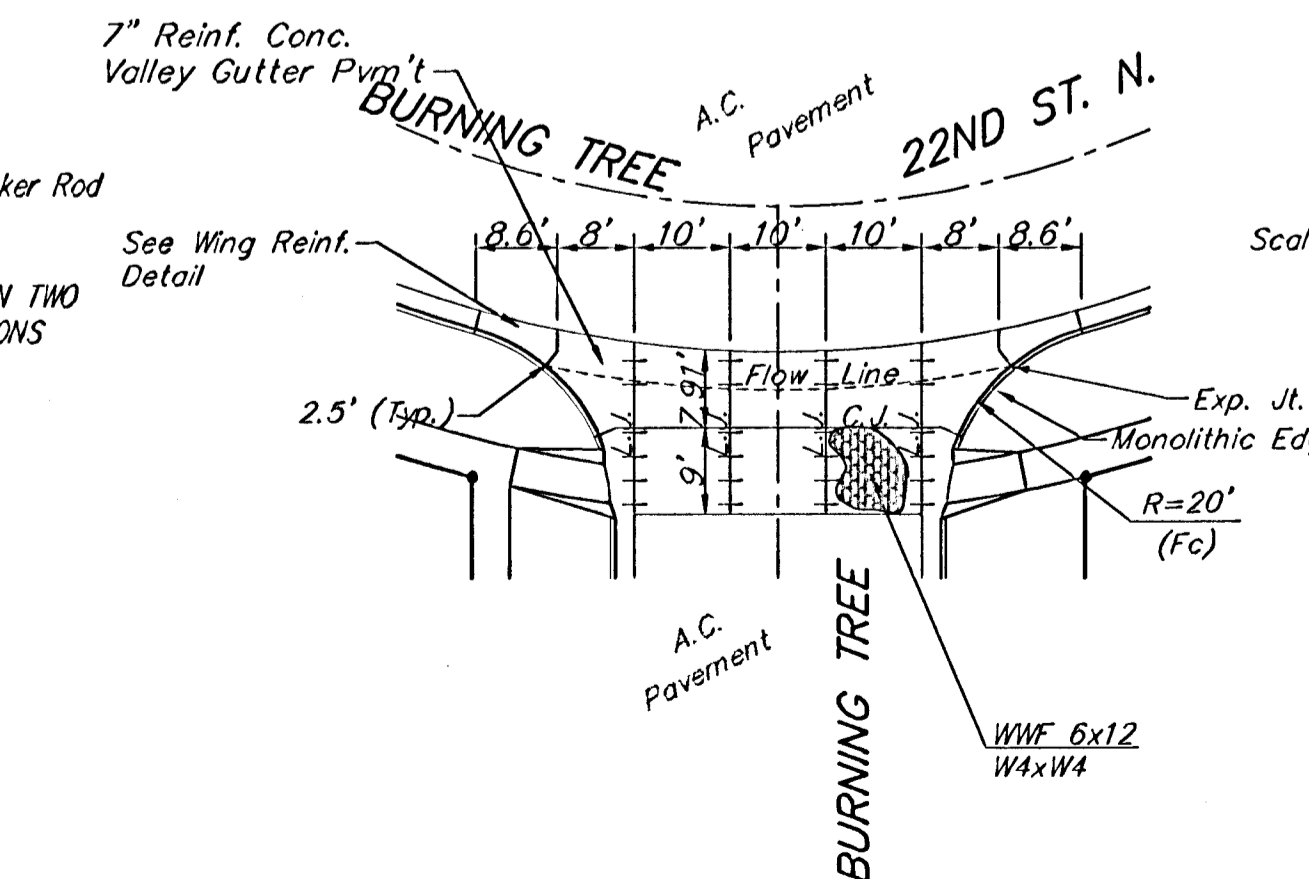 7" Reinf. Conc.
Valley Gutter Pvm't
BURNING TREE
A.C.
Pavement
22ND ST. N.
ker Rod
See Wing Reinf.
Detail
8.6' 8' 10' 10' 10' 8' 8.6'
Scal
N TWO
ONS
7.91'
Flow Line
2.5' (Typ.)
L.J. L.J. C.J. L.J.
Exp. Jt.
Monolithic Ed
9'
R=20'
(Fc)
A.C.
Pavement
BURNING TREE
WWF 6x12
W4xW4